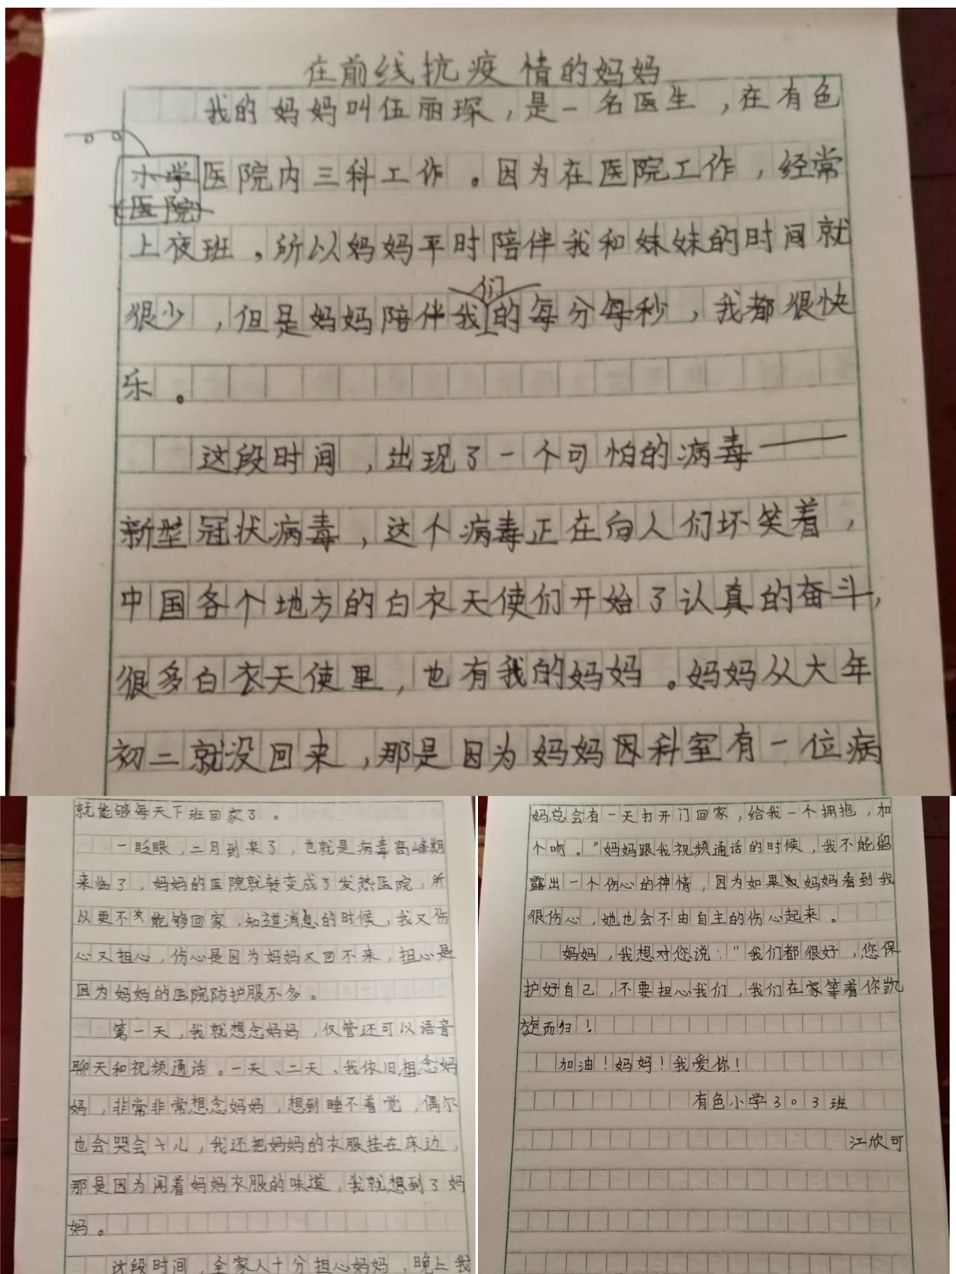 在前线抗疫情的妈妈
我的妈妈叫伍丽琛，是一名医生，在有色
小学医院内三科工作。因为在医院工作，经常
(医院)
上夜班。所以妈妈平时陪伴我和妹妹的时间就
很少，但是妈妈陪伴我们的每分每秒，我都很快
乐。
这段时间，出现了一个可怕的病毒——
新型冠状病毒，这个病毒正在向人们坏笑着，
中国各个地方的白衣天使们开始了认真的奋斗，
很多白衣天使里，也有我的妈妈。妈妈从大年
初二就没回来，那是因为妈妈因科室有一位病
就能够每天下班回家了。
一眨眼，二月到来了，也就是病毒高峰期
来临了，妈妈的医院就转变成了发热医院，所
以更不能够回家，知道消息的时候，我又伤
心又担心，伤心是因为妈妈又回不来，担心是
因为妈妈的医院防护服不多。
第一天，我就想念妈妈，仅管还可以语音
聊天和视频通话。一天、二天、我依旧想念妈
妈，非常非常想念妈妈，想到睡不着觉，偶尔
也会哭会儿，我还把妈妈的衣服挂在床边，
那是因为闻着妈妈衣服的味道，我就想到了妈
妈。
这段时间，全家人十分担心妈妈，晚上我
妈总会有一天打开门回家，给我一个拥抱，加
个吻。"妈妈跟我视频通话的时候，我不能留
露出一个伤心的神情，因为如果妈妈看到我
很伤心，她也会不由自主的伤心起来。
妈妈，我想对您说："我们都很好，您保
护好自己，不要担心我们，我们在家等着你凯
旋而归！
加油！妈妈！我爱你！
有色小学303班
江欣可